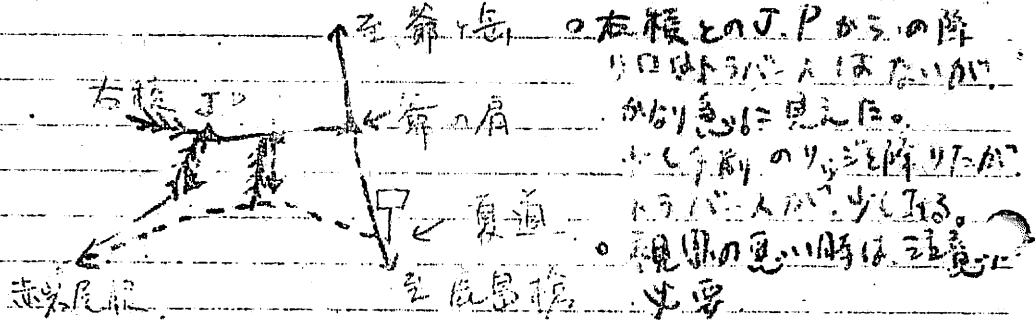 至爺ヶ岳
右稜 J.P
←爺の肩
←夏道
赤岩尾根
至鹿島槍
○右稜とのJ.Pからの降
り口はトラバースはないが
かなり急に見えた。
少し手前のリッジを降りたが
トラバースが少しある。
○視界の悪い時は注意が
必要